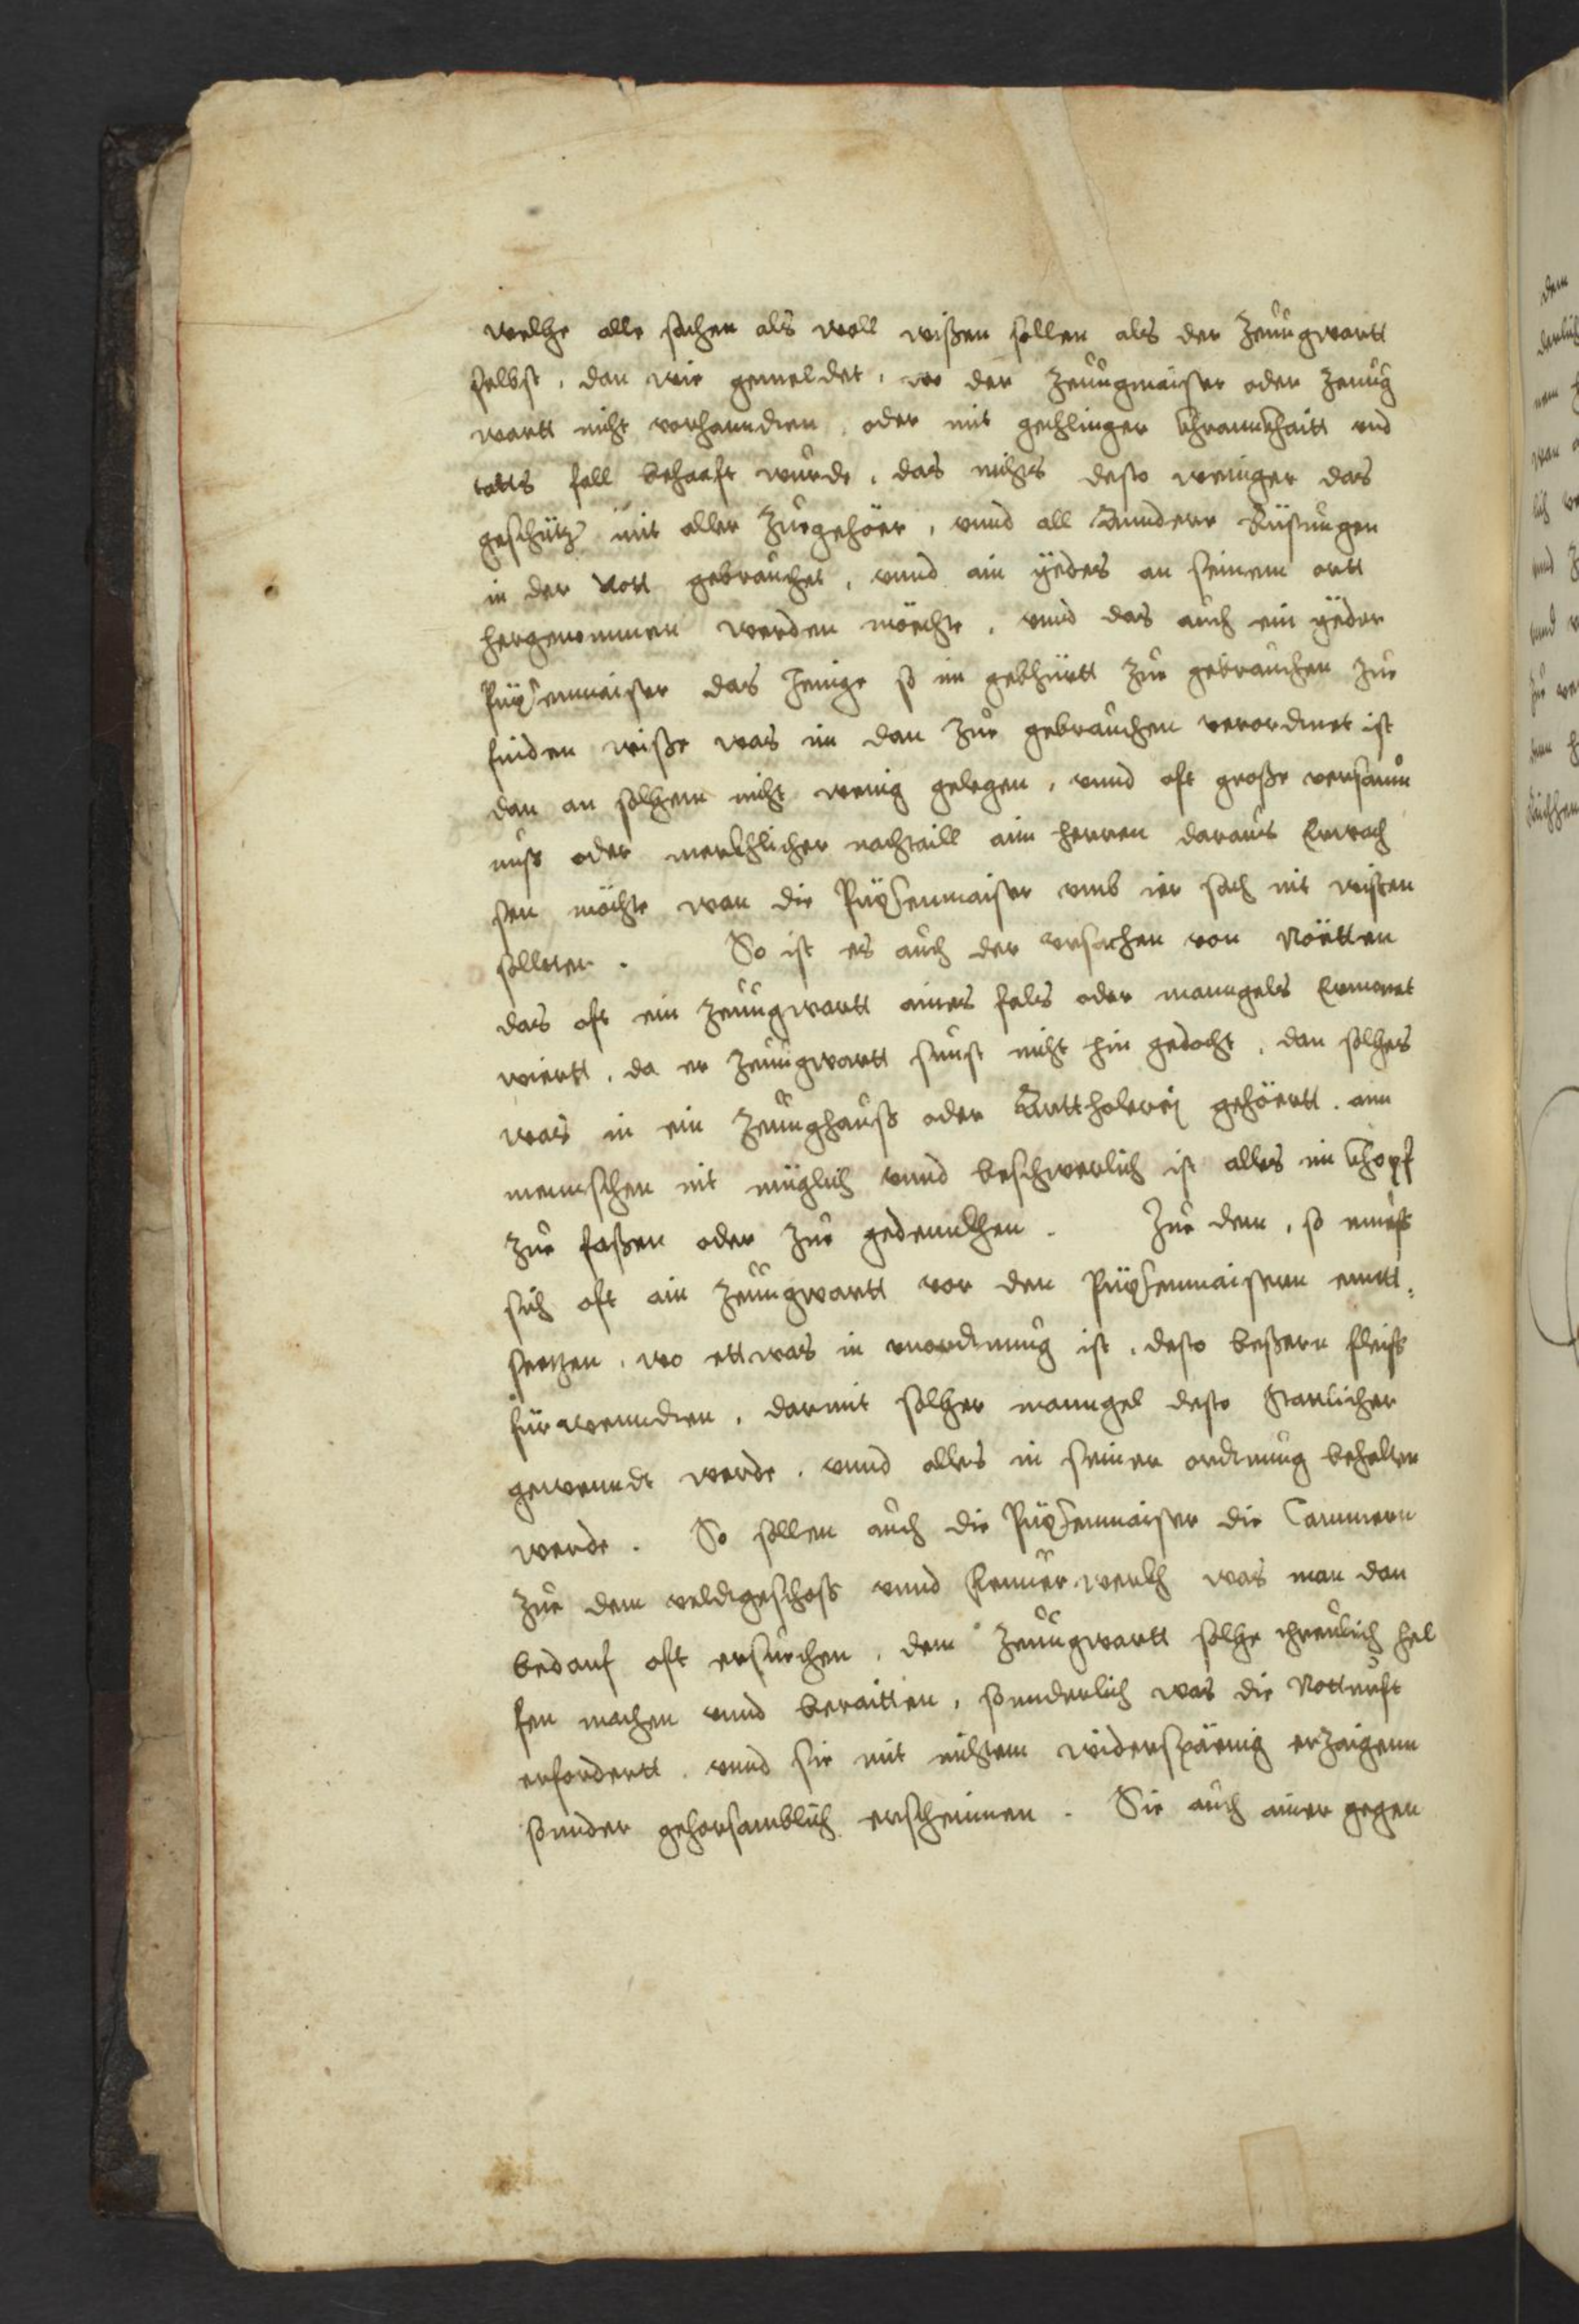 welhe alle sachen als woll wißen sollen als der Zeuůgwartt
selbst, dan wie gemeldet, wo der Zeuůgmaister oder Zeuůg
wartt nicht vorhanndien, oder mit gechlinger khrannkhaitt vnd
totts fall behaafft wurde, das nichts desto weniger das
geschütz mit aller Zuegehöer, vnnd all Annderr Rüstungen
in der Nott gebrauchet, vnnd ain yedes an seinem ortt
hergenommen werden möchte, vnnd das auch ein yeder
Püxsenmaister das Jenige so im gebhürtt zue gebrauchen zue
finden wiße was im dan zue gebrauchen verordnet ist
dan an solhem nicht wenig gelegen, vnnd oft große versaum
nuß oder merkhlicher nachtaill aim herren daraus Erwach
sen möchte wan die Püxsenmaister vmb ier sach nit wisten
sollten. So ist es auch der vrsachen von Nöetten
das oft ein Zeuugwartt aines fels oder manngels Ermonet
wiertt, da er Zeuugwartt sunst nicht hin gedacht, dan solhes
was in ein Zeuughauß oder Arttholerej gehöertt. aim
mennschen nit müglich vnnd beschwerlich ist alles im khopf
zue faßen oder zue gedennkhen. Zue dem, so mueß
sich oft ain Zeuugwartt vor den Püxsenmaistern entt,
seetzen, wo ettwas in vnordnung ist, desto beßern fleiß
fürwenndten, darmit solher manngel desto stattlicher
gewenndt werde, vnnd alles in seiner ordnung behalten
werde. So sollen auch die Püxsenmaister die Cammern
zue dem veldtgeschoß vnnd Feuuer werkh was man dan
bedarf oft ersuechen, dem Zeuugwartt solhe threulich hel
fen machen vnnd beraitten, sonnderlich was die Notturft
erfordertt, vnnd sie mit nichtem widerspänig erzaigenn
sonnder gehorsamblich erscheinnen. Sie auch ainer gegen